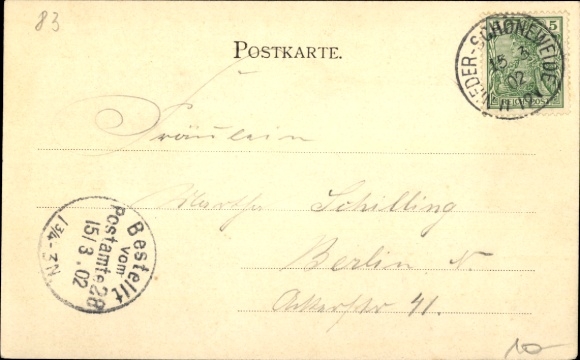 83
POSTKARTE.
5
NIEDER-SCHÖNEWEIDE
15 3
02
REICHSPOST
Fräulein
Martha Schilling
Berlin N.
Ackerstr 41.
Bestellt
vom
Postamte 28
15/3.02
1¾-3N
10